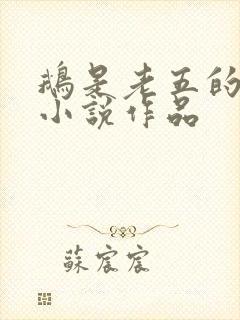 鵝是老五的
小說作品
蘇宸宸